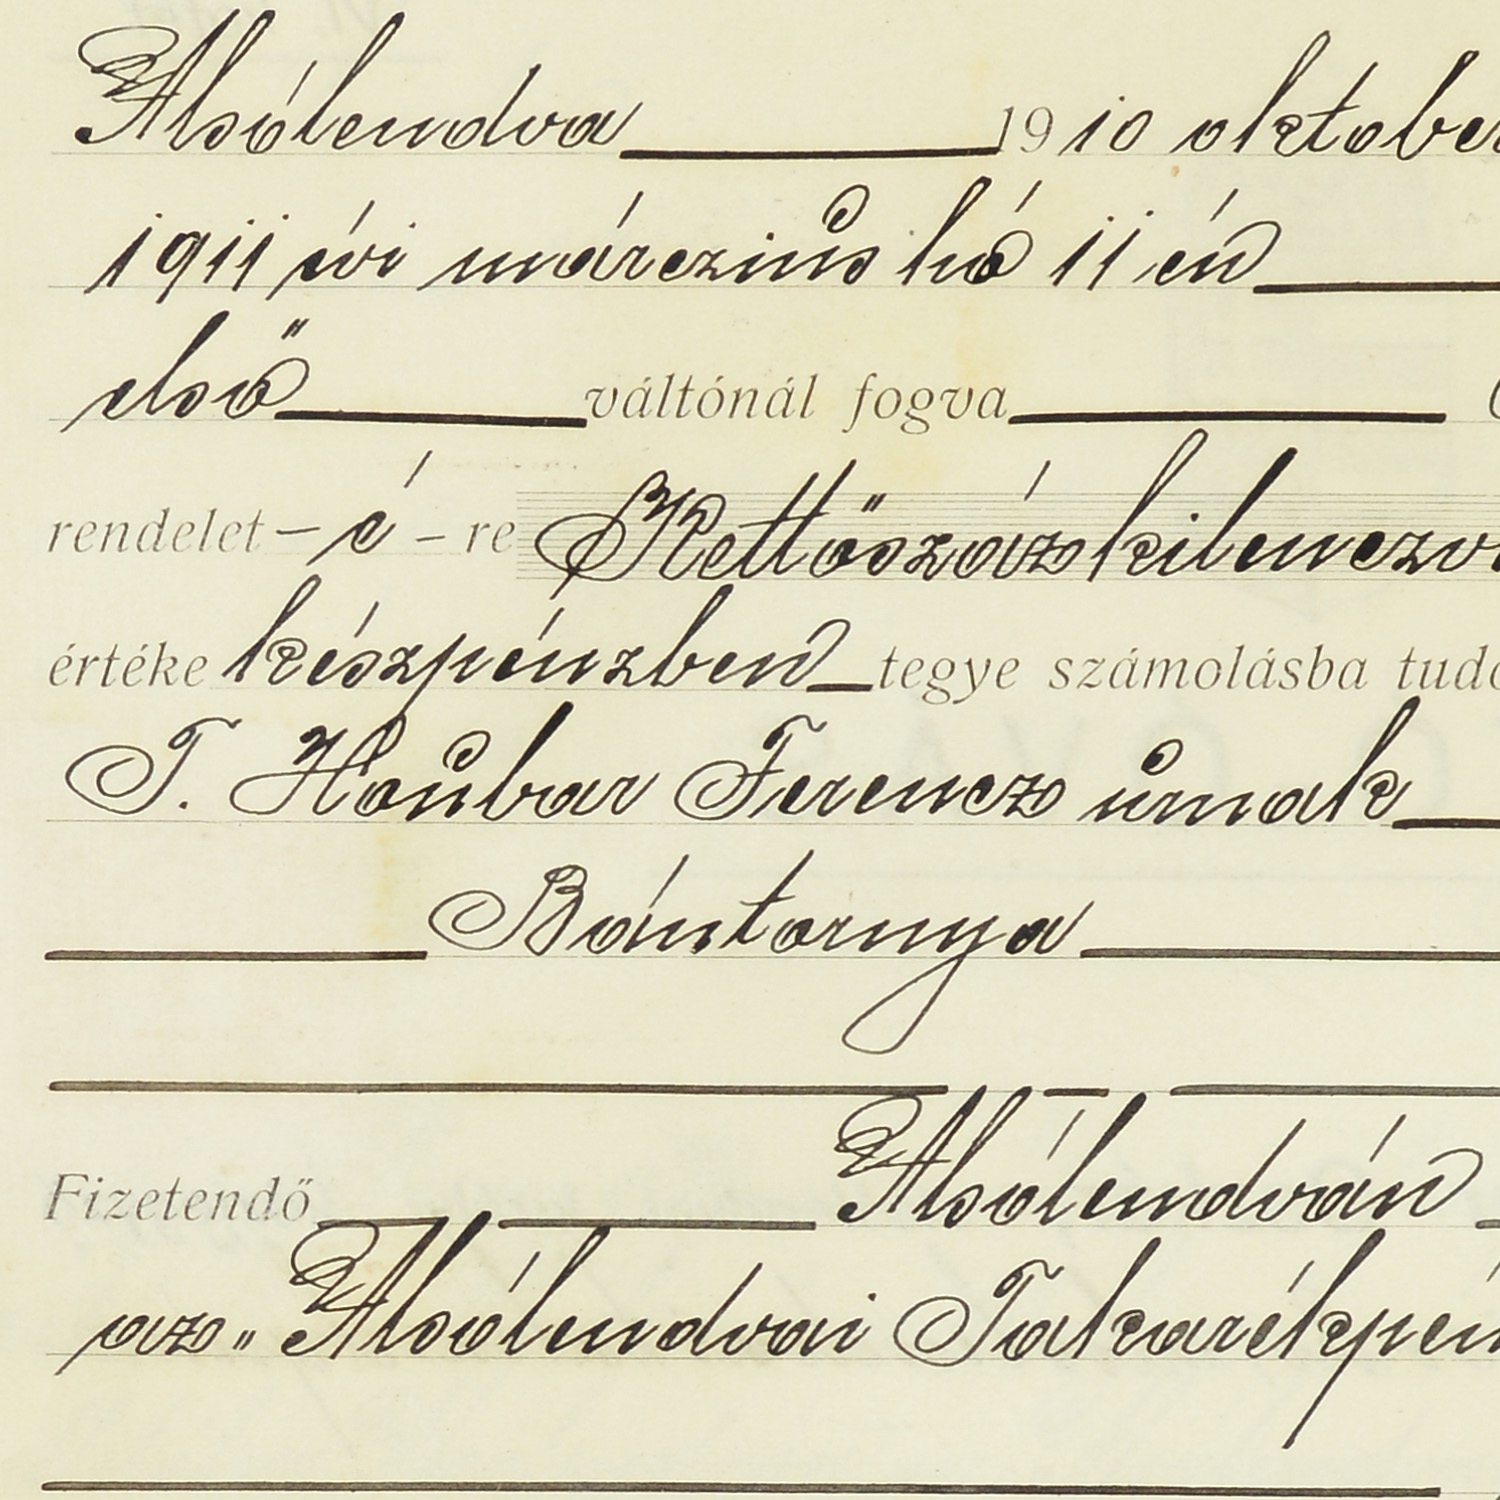 Alsólendva 1910 október
1911 évi márczius hó 11 én
első váltónál fogva
rendelet – é – re Kettőszázkilenczv
értéke készpénzben tegye számolásba tudó
T. Houbar Ferencz úrnak
Bántornya
Fizetendő Alsólendván
az „Alsólendvai Takarékpén